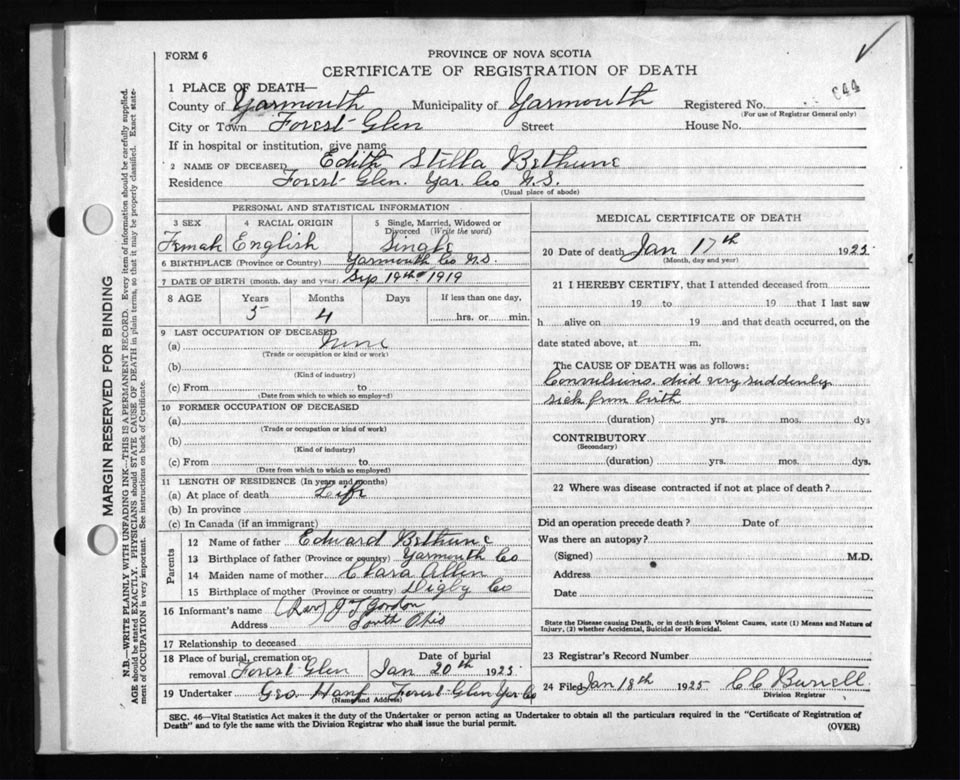 FORM 6
PROVINCE OF NOVA SCOTIA
CERTIFICATE OF REGISTRATION OF DEATH
1 PLACE OF DEATH—
County of Yarmouth Municipality of Yarmouth Registered No. C44
(For use of Registrar General only)
City or Town Forest Glen Street House No.
If in hospital or institution, give name
2 NAME OF DECEASED Edith Stella Bethune
Residence Forest Glen. Yar. Co N.S.
(Usual place of abode)
PERSONAL AND STATISTICAL INFORMATION
3 SEX 4 RACIAL ORIGIN 5 Single, Married, Widowed or Divorced (Write the word)
Female English Single
6 BIRTHPLACE (Province or Country) Yarmouth Co N.S.
7 DATE OF BIRTH (month, day and year) Sep 19th 1919
8 AGE Years Months Days If less than one day,
5 4 hrs. or min.
9 LAST OCCUPATION OF DECEASED
(a) None
(Trade or occupation or kind or work)
(b)
(Kind of industry)
(c) From to
(Date from which to which so employed)
10 FORMER OCCUPATION OF DECEASED
(a)
(Trade or occupation or kind of work)
(b)
(Kind of industry)
(c) From to
(Date from which to which so employed)
11 LENGTH OF RESIDENCE (In years and months)
(a) At place of death Life
(b) In province
(c) In Canada (if an immigrant)
Parents
12 Name of father Edward Bethune
13 Birthplace of father (Province or country) Yarmouth Co
14 Maiden name of mother Clara Allen
15 Birthplace of mother (Province or country) Digby Co
16 Informant's name (Rev) J T Gordon
Address South Ohio
17 Relationship to deceased
18 Place of burial, cremation or removal Forest Glen Date of burial Jan 20th 1925
19 Undertaker Geo. Forest Glen Yar Co
(Name and Address)
MEDICAL CERTIFICATE OF DEATH
20 Date of death Jan 17th 1925
(Month, day and year)
21 I HEREBY CERTIFY, that I attended deceased from
19 to 19 that I last saw
h alive on 19 and that death occurred, on the
date stated above, at m.
The CAUSE OF DEATH was as follows:
Convulsions. died very suddenly
sick from birth
(duration) yrs. mos. dys
CONTRIBUTORY
(Secondary)
(duration) yrs. mos. dys.
22 Where was disease contracted if not at place of death?
Did an operation precede death? Date of
Was there an autopsy?
(Signed) M.D.
Address
Date
State the Disease causing Death, or in death from Violent Causes, state (1) Means and Nature of
Injury, (2) whether Accidental, Suicidal or Homicidal.
23 Registrar's Record Number
24 Filed Jan 18th 1925 C C Burrell
Division Registrar
SEC. 46—Vital Statistics Act makes it the duty of the Undertaker or person acting as Undertaker to obtain all the particulars required in the "Certificate of Registration of
Death" and to fyle the same with the Division Registrar who shall issue the burial permit.
(OVER)
MARGIN RESERVED FOR BINDING
N.B.—WRITE PLAINLY WITH UNFADING INK—THIS IS A PERMANENT RECORD. Every item of information should be carefully supplied.
AGE should be stated EXACTLY. PHYSICIANS should STATE CAUSE OF DEATH in plain terms, so that it may be properly classified. Exact state-
ment of OCCUPATION is very important. See instructions on back of Certificate.